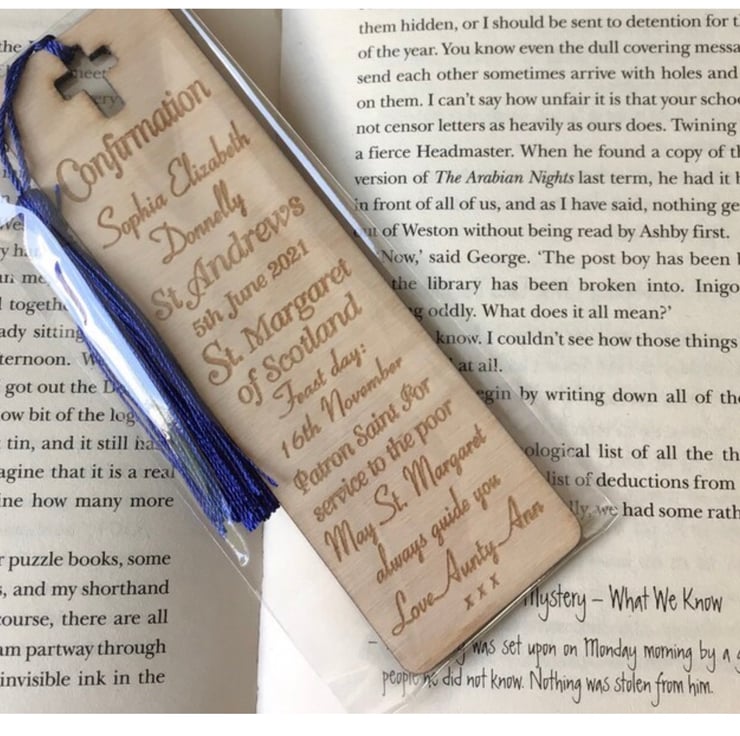 the
togeth
ady sitting
ternoon.
got out the
ow bit of the log
tin, and it still ha
agine that it is a real
ine how many more
r puzzle books, some
s, and my shorthand
ourse, there are all
am partway through
invisible ink in the
Confirmation
Sophia Elizabeth
Donnelly
St Andrews
5th June 2021
St. Margaret
of Scotland
Feast day:
16th November
Patron Saint For
service to the poor
May St. Margaret
always guide you
Love Aunty Ann
x x x
them hidden, or I should be sent to detention for t
of the year. You know even the dull covering messa
send each other sometimes arrive with holes and
on them. I can't say how unfair it is that your schoo
not censor letters as heavily as ours does. Twining
a fierce Headmaster. When he found a copy of th
version of The Arabian Nights last term, he had it h
in front of all of us, and as I have said, nothing ge
out of Weston without being read by Ashby first.
'Now,' said George. 'The post boy has been
the library has been broken into. Inigo
oddly. What does it all mean?'
know. I couldn't see how those things
at all.
egin by writing down all of the
ological list of all the th
list of deductions from
lly, we had some rath
Mystery – What We Know
was set upon on Monday morning by a
people he did not know. Nothing was stolen from him.